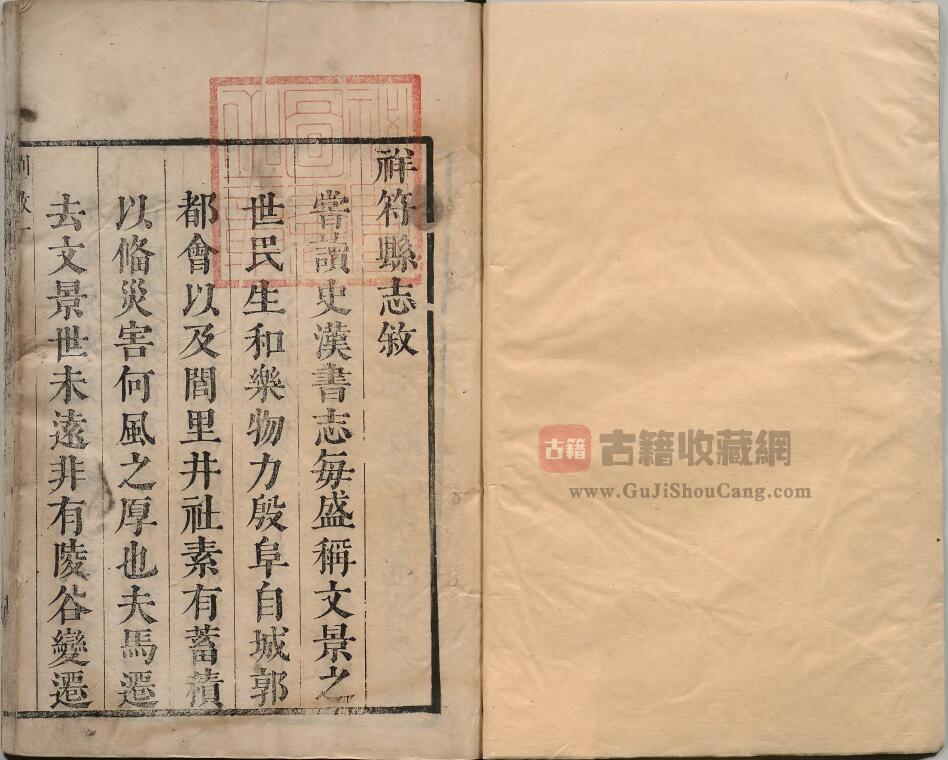 祥符縣志敘
嘗讀史漢書志每盛稱文景之
世民生和樂物力殷阜自城郭
都會以及閭里井社素有蓄積
以俻災害何風之厚也夫馬遷
去文景世未遠非有陵谷變遷
古籍
古籍收藏網
www.GuJiShouCang.com